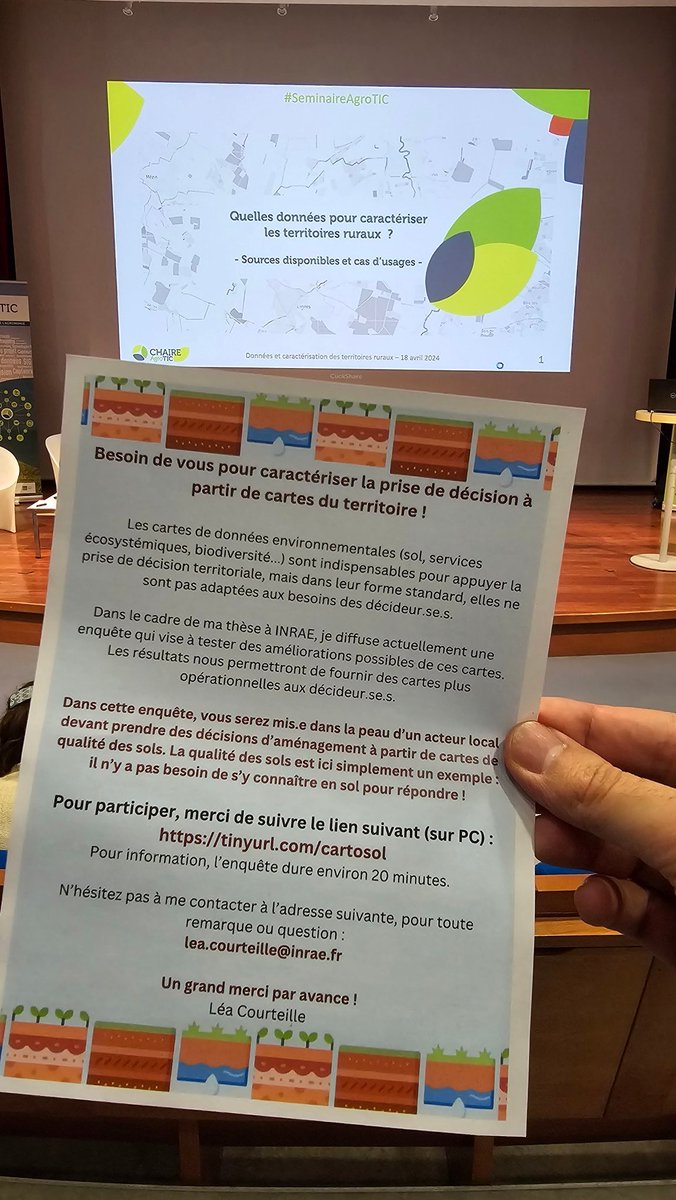 #SeminaireAgroTIC
Quelles données pour caractériser
les territoires ruraux ?
- Sources disponibles et cas d'usages -
CHAIRE
AgroTIC
Données et caractérisation des territoires ruraux – 18 avril 2024
1
ClickShare
TIC
Besoin de vous pour caractériser la prise de décision à
partir de cartes du territoire !
Les cartes de données environnementales (sol, services
écosystémiques, biodiversité...) sont indispensables pour appuyer la
prise de décision territoriale, mais dans leur forme standard, elles ne
sont pas adaptées aux besoins des décideur.se.s.
Dans le cadre de ma thèse à INRAE, je diffuse actuellement une
enquête qui vise à tester des améliorations possibles de ces cartes.
Les résultats nous permettront de fournir des cartes plus
opérationnelles aux décideur.se.s.
Dans cette enquête, vous serez mis.e dans la peau d'un acteur local
devant prendre des décisions d'aménagement à partir de cartes de
qualité des sols. La qualité des sols est ici simplement un exemple :
il n'y a pas besoin de s'y connaître en sol pour répondre !
Pour participer, merci de suivre le lien suivant (sur PC) :
https://tinyurl.com/cartosol
Pour information, l'enquête dure environ 20 minutes.
N'hésitez pas à me contacter à l'adresse suivante, pour toute
remarque ou question :
lea.courteille@inrae.fr
Un grand merci par avance !
Léa Courteille